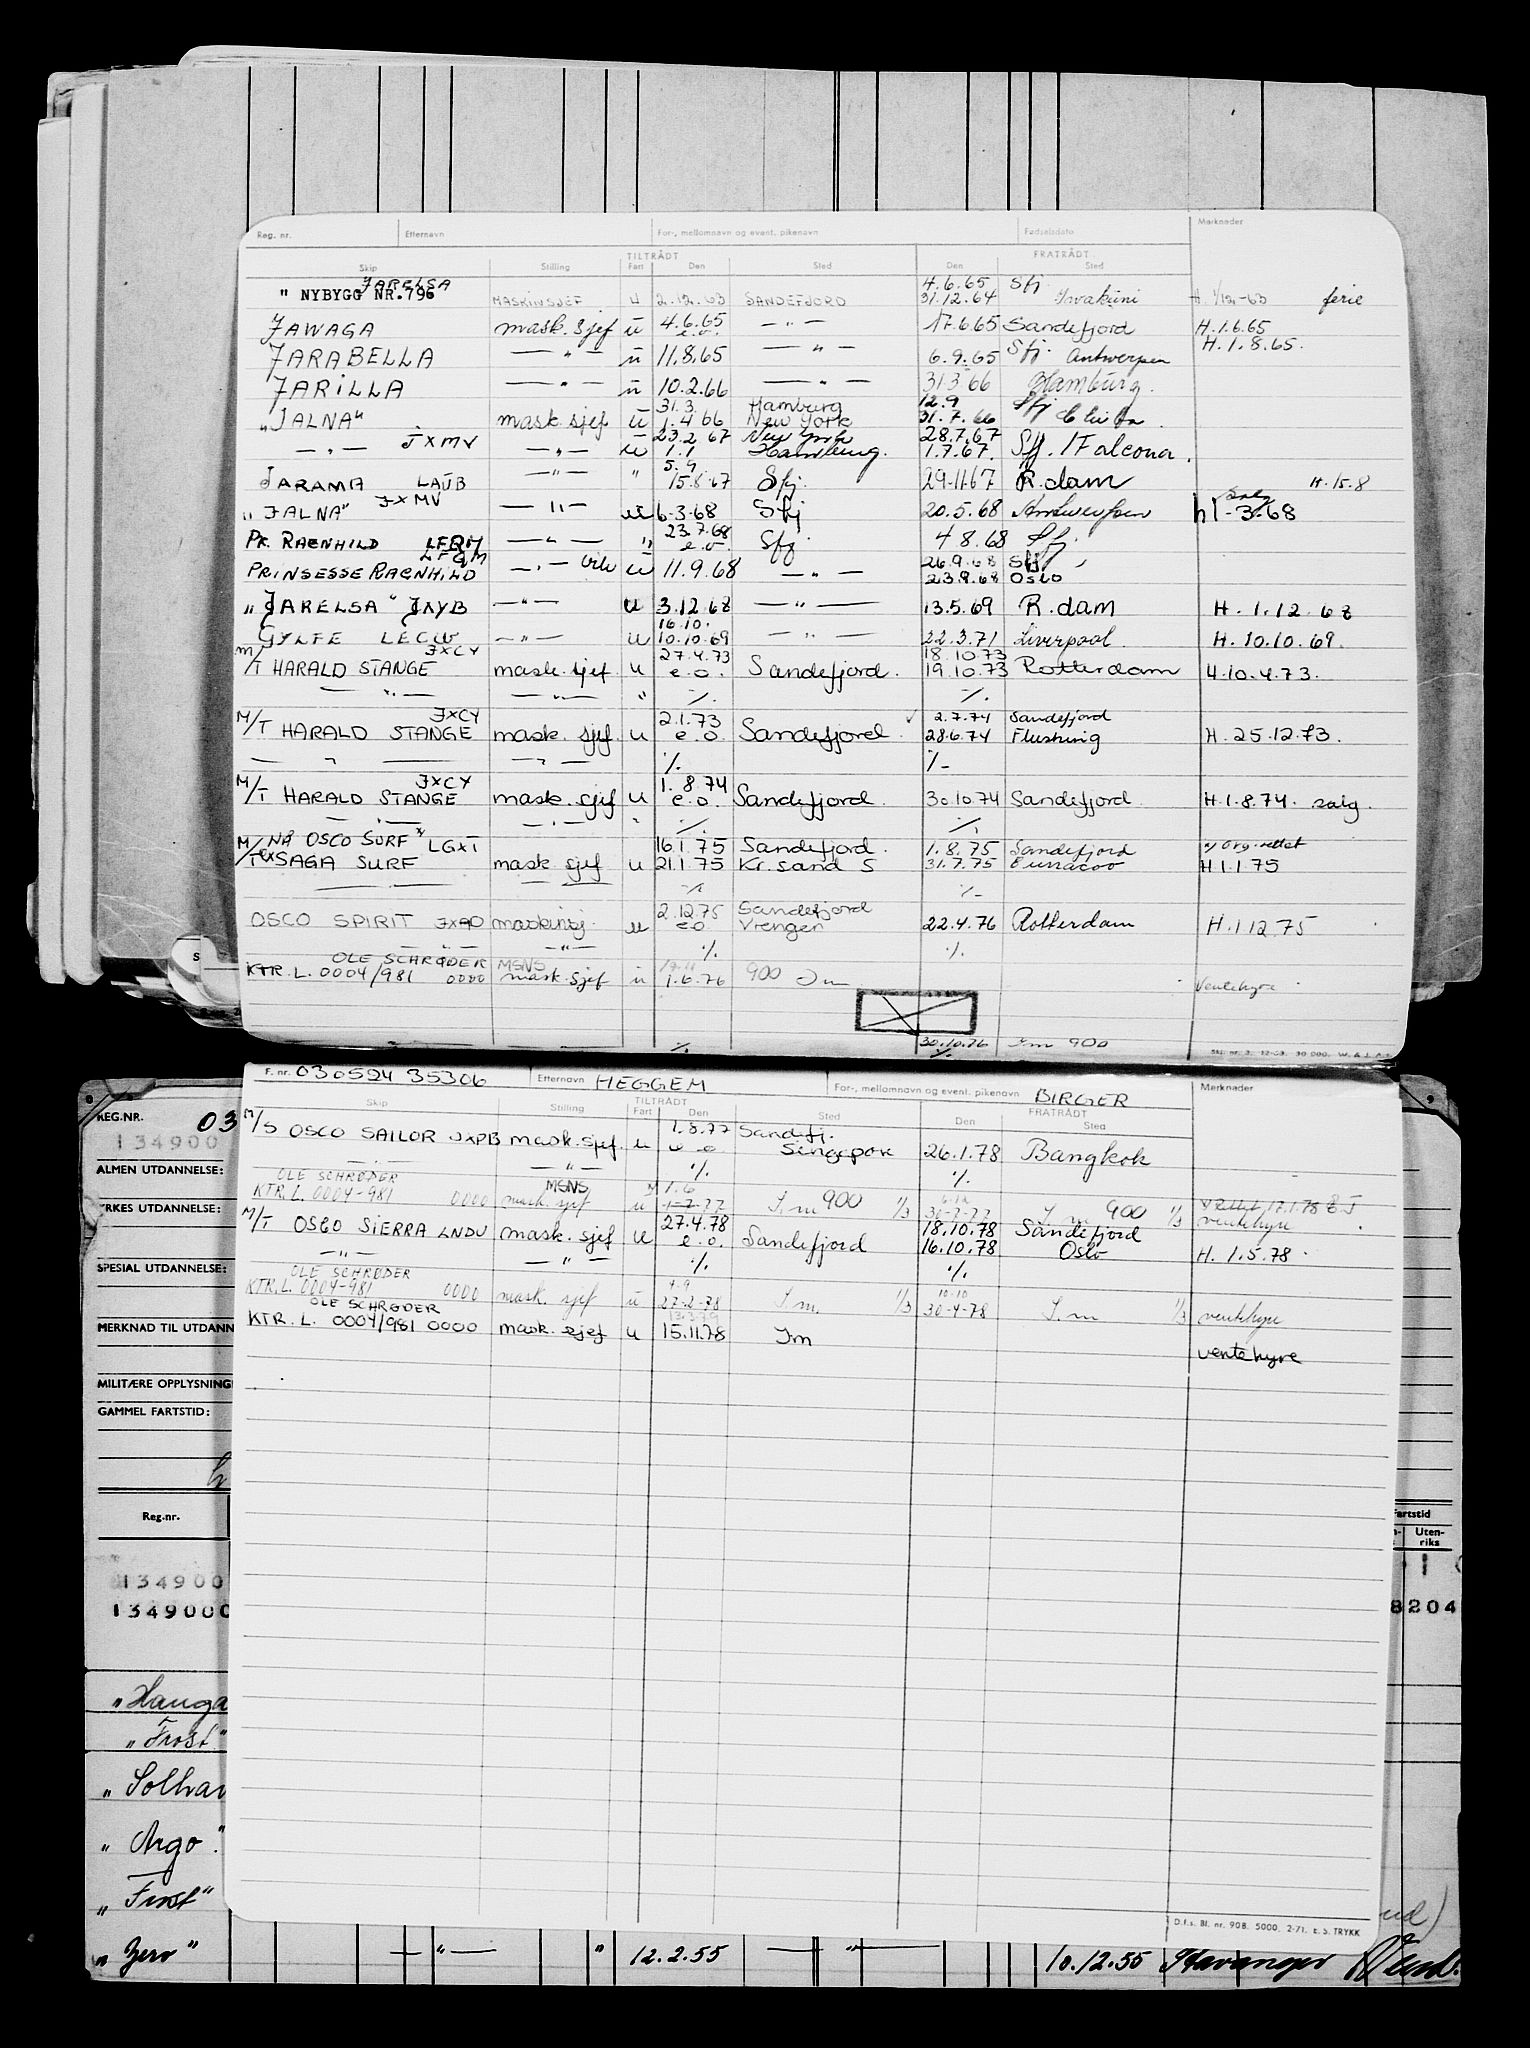 Reg. nr. Etternavn For-, mellomnavn og event. pikenavn Fødselsdato Merknader
TILTRÅDT FRATRÅDT
Skip Stilling Fart Den Sted Den Sted
JARELSA 4.6.65 Sfj
" NYBYGG NR.796 MASKINSJEF u 2.12.63 SANDEFJORD 31.12.64 Iwakuni H. 1/12-63 ferie
JAWAGA mask. sjef u 4.6.65 — " — 17.6.65 Sandefjord H.1.6.65
e.o.
JARABELLA — " — u 11.8.65 — " — 6.9.65 Sfj. Antwerpen H.1.8.65.
JARILLA — " — u 10.2.66 — " — 31.3.66 Hamburg.
31.3. Hamburg 12.9 Sfj
"JALNA" mask. sjef u 1.4.66 New York 31.7.66
JXMV 23.2.67 New York 28.7.67
— " — — " — u 1.1 Hamburg. 1.7.67. Sfj. / Falconar.
5.9
JARAMA LAUB — " — " 15.8.67 Sfj. 29.11.67 R.dam H.15.8
JXMV salg
"JALNA" — " — u 6-3-68 Sfj 20.5.68 Antwerpen h 1-3.68
23.7.68
PR. RAGNHILD LFQM — " — " e.o. Sfj 4 8.68 Sfj
LFQM 26.9.68 Sfj
PRINSESSE RAGNHILD — " — vik u 11.9.68 — " — 23.9.68 Oslo
"JARELSA" JXYB — " — u 3.12.68 — " — 13.5.69 R.dam H. 1.12.68
16.10.
GYLFE LECW — " — u 10.10.69 — " — 22.3.71 Liverpool H. 10.10.69.
M/T HARALD STANGE JXCY mask. sjef u 27.4.73 e.o. Sandefjord. 18.10.73 19.10.73 Rotterdam 4.10.4.73.
— " — — " — " ·/. ·/.
M/T HARALD STANGE JXCY mask. sjef. u 2.1.73 e.o. Sandefjord. 2.7.74 Sandefjord
28.6.74 Flushing H. 25.12.73.
— " — — " — ·/. ·/-
M/T HARALD STANGE JXCY mask. sjef u 1.8.74 e.o. Sandefjord. 30.10.74 Sandefjord. H.1.8.74. salg.
— " — — " — ·/. ·/.
M/T NÅ OSCO SURF LGXT 16.1.75 Sandefjord. 1.8.75 Sandefjord
ex SAGA SURF mask. sjef u 21.1.75 Kr.sand S 31.7.75 H 1.1.75
·/. ·/-
2.12.75 Sandefjord
OSCO SPIRIT maskinsj. u e.o. Vrengen 22.4.76 Rotterdam H.1.12.75
— " — — " — ·/. ·/.
OLE SCHRØDER MSNS
KTR.L. 0004/981 0000 mask. sjef u 1.6.76 900 Im Ventehyre
30.10.76 Im 900
F. nr. 030524 35306 Etternavn HEGGEM For-, mellomnavn og event. pikenavn BIRGER Merknader
TILTRÅDT FRATRÅDT
Skip Stilling Fart Den Sted Den Sted
M/S OSCO SAILOR JXPB mask. sjef. u 1.8.77 Sandefj.
e o Singapore 26.1.78 Bangkok
— " — ·/. ·/.
OLE SCHRØDER MSNS 1.6
KTR.L. 0004-981 0000 mask. sjef u I.m 900 1/3 I m 900 1/3 ventehyre
M/T OSCO SIERRA LNDU mask. sjef u 27.4.78 e.o. Sandefjord 18.10.78 Sandefjord
16.10.78 Oslo H. 1.5.78
— " — — " — ·/. ·/.
OLE SCHRØDER 10.10
KTR.L. 0004-981 0000 mask. sjef u 27-2-78 I.m. 1/3 30-4-78 I.m 1/3 ventehyre
OLE SCHRØDER
KTR. L. 0004/981 0000 mask. sjef u 15.11.78 Im
ventehyre
D.f.s. Bl. nr. 90B. 5000. 2-71. E. S. TRYKK
REG.NR. 03
134900
ALMEN UTDANNELSE:
YRKES UTDANNELSE:
SPESIAL UTDANNELSE:
MERKNAD TIL UTDANN
MILITÆRE OPPLYSNING
GAMMEL FARTSTID:
Reg.-nr. Fartstid
Uten-
riks
134900
1349000 8204
"Hauga
"Frost"
"Solhav
"Argo"
"Frost"
"Zero" — " — " 12.2.55 — " — 10.12.55 Stavanger